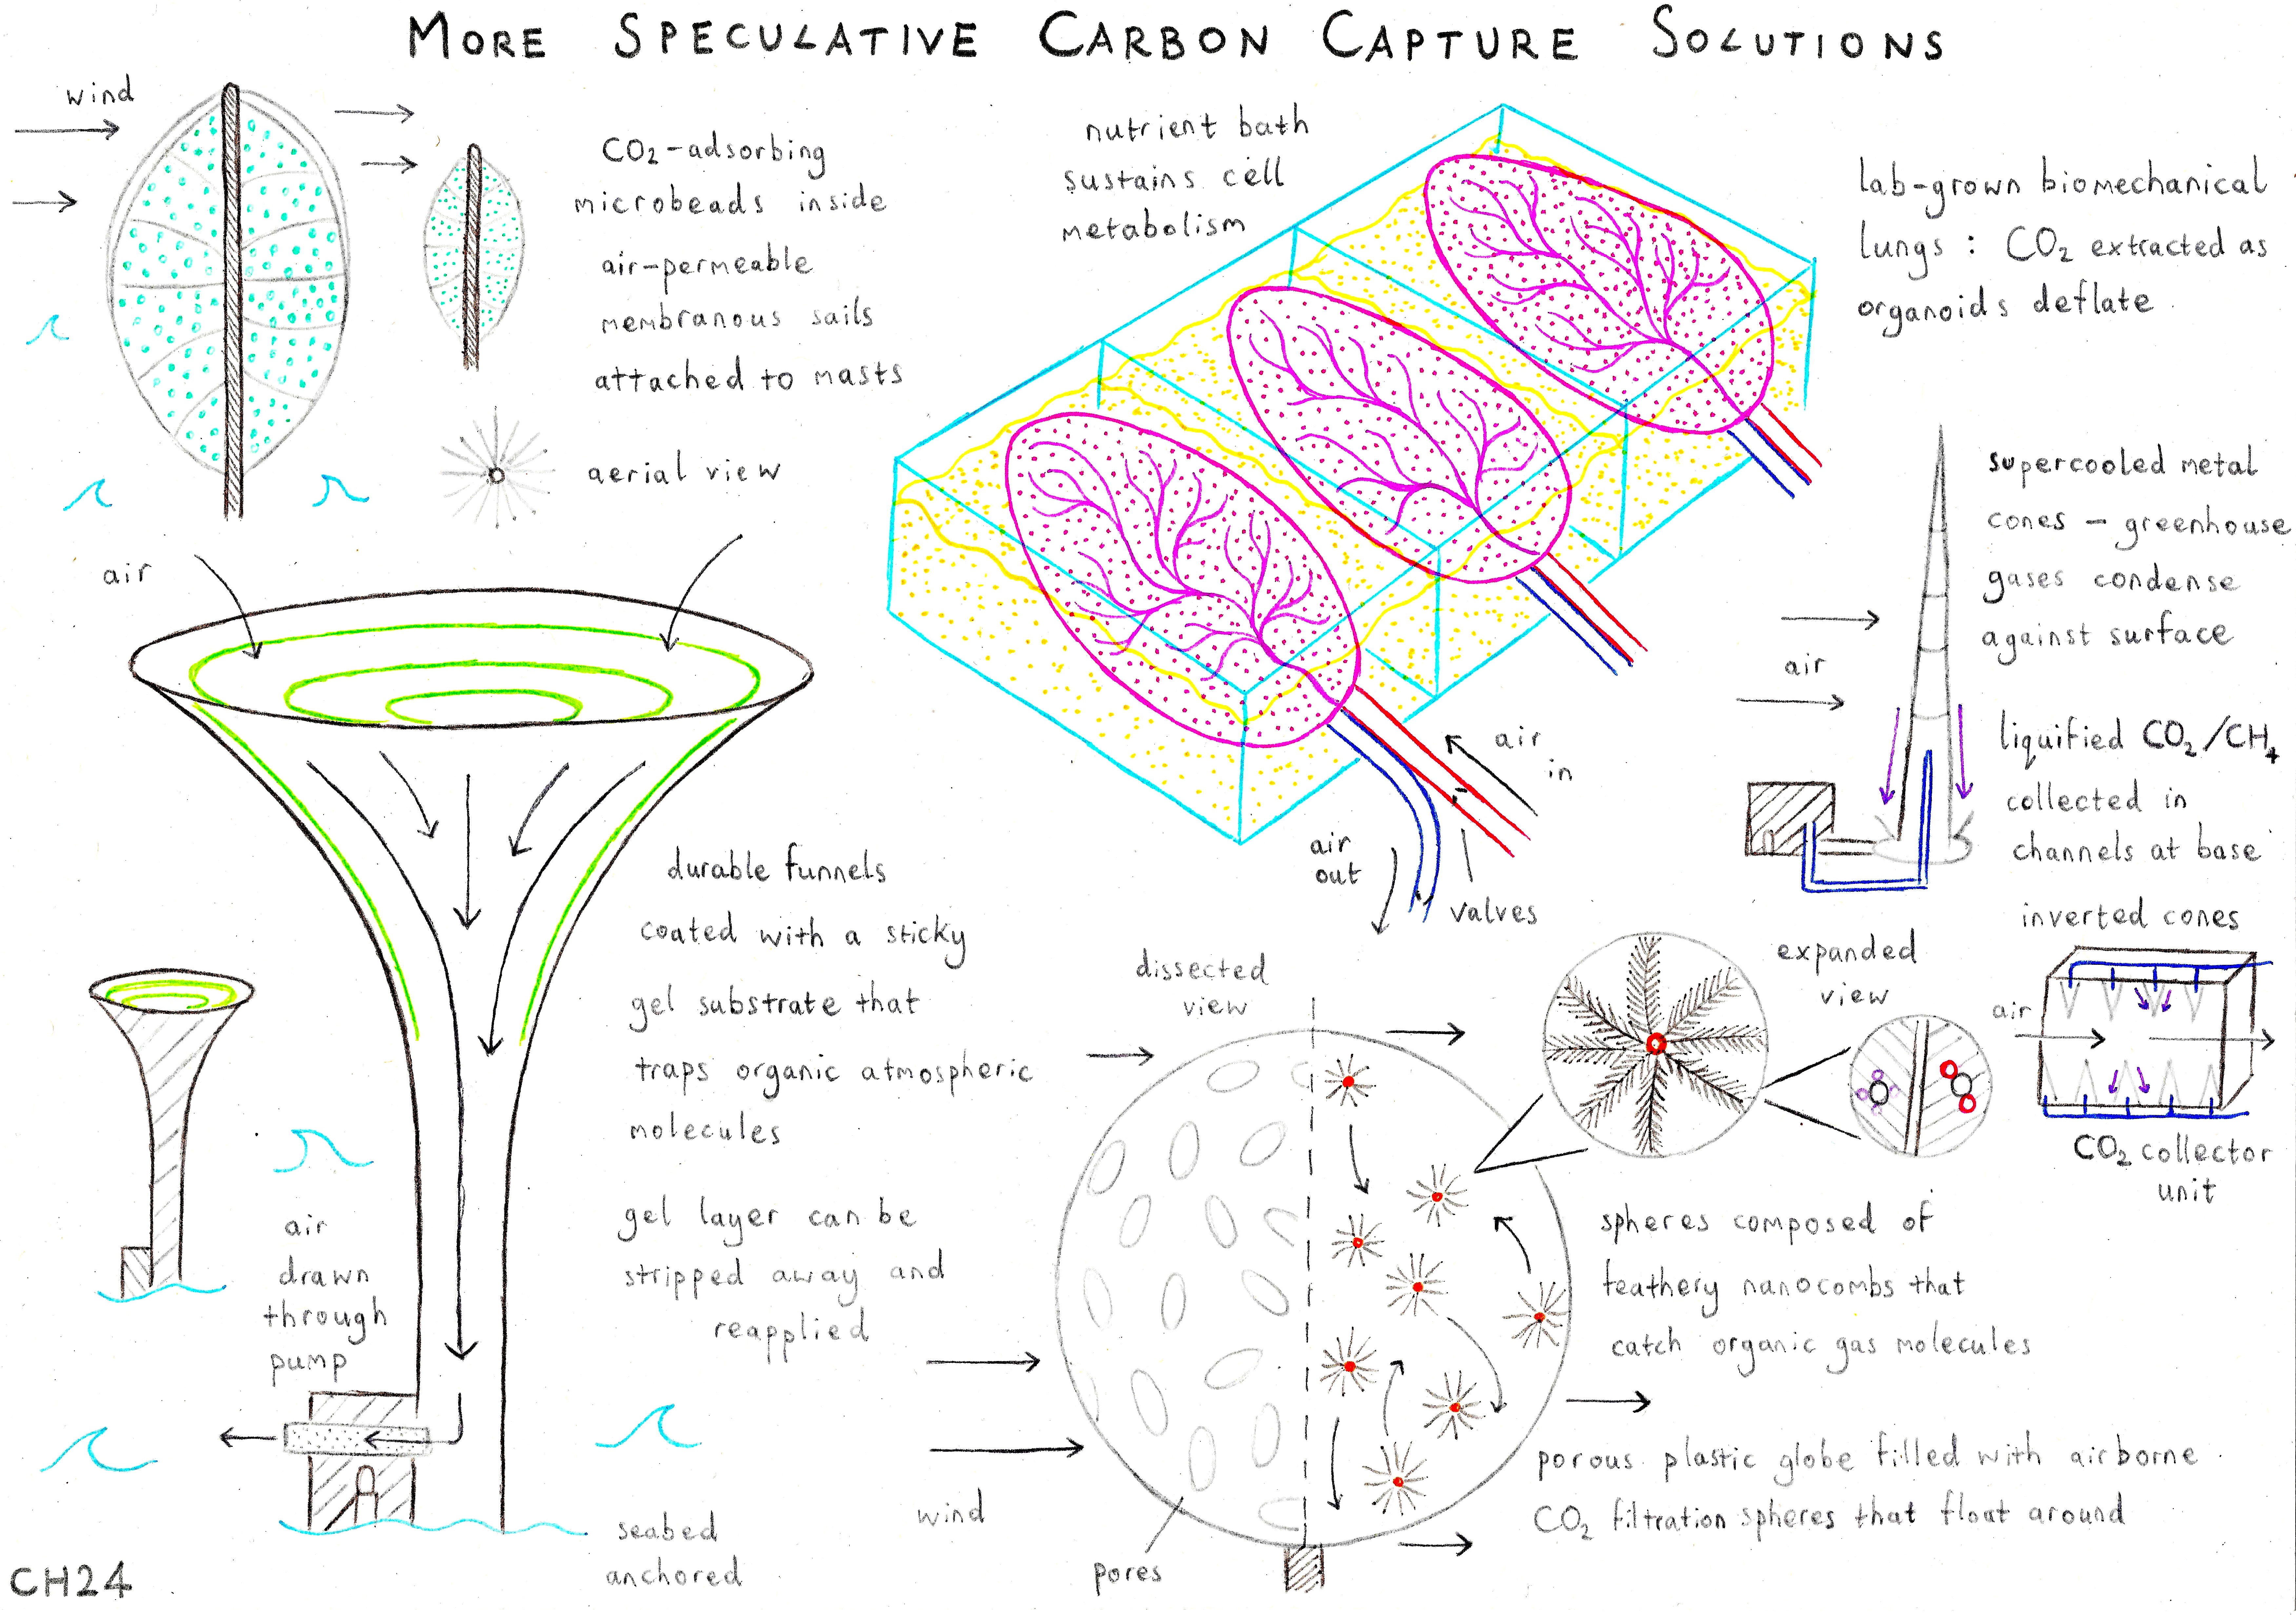 MORE SPECULATIVE CARBON CAPTURE SOLUTIONS
wind
CO₂-adsorbing
microbeads inside
air-permeable
membranous sails
attached to masts
aerial view
nutrient bath
sustains cell
metabolism
lab-grown biomechanical
lungs : CO₂ extracted as
organoids deflate
air
in
air
out
valves
supercooled metal
cones - greenhouse
gases condense
against surface
air
liquified CO₂/CH₄
collected in
channels at base
inverted cones
air
CO₂ collector
unit
air
durable funnels
coated with a sticky
gel substrate that
traps organic atmospheric
molecules
gel layer can be
stripped away and
reapplied
air
drawn
through
pump
seabed
anchored
dissected
view
expanded
view
spheres composed of
feathery nanocombs that
catch organic gas molecules
porous plastic globe filled with airborne
CO₂ filtration spheres that float around
wind
pores
CH24